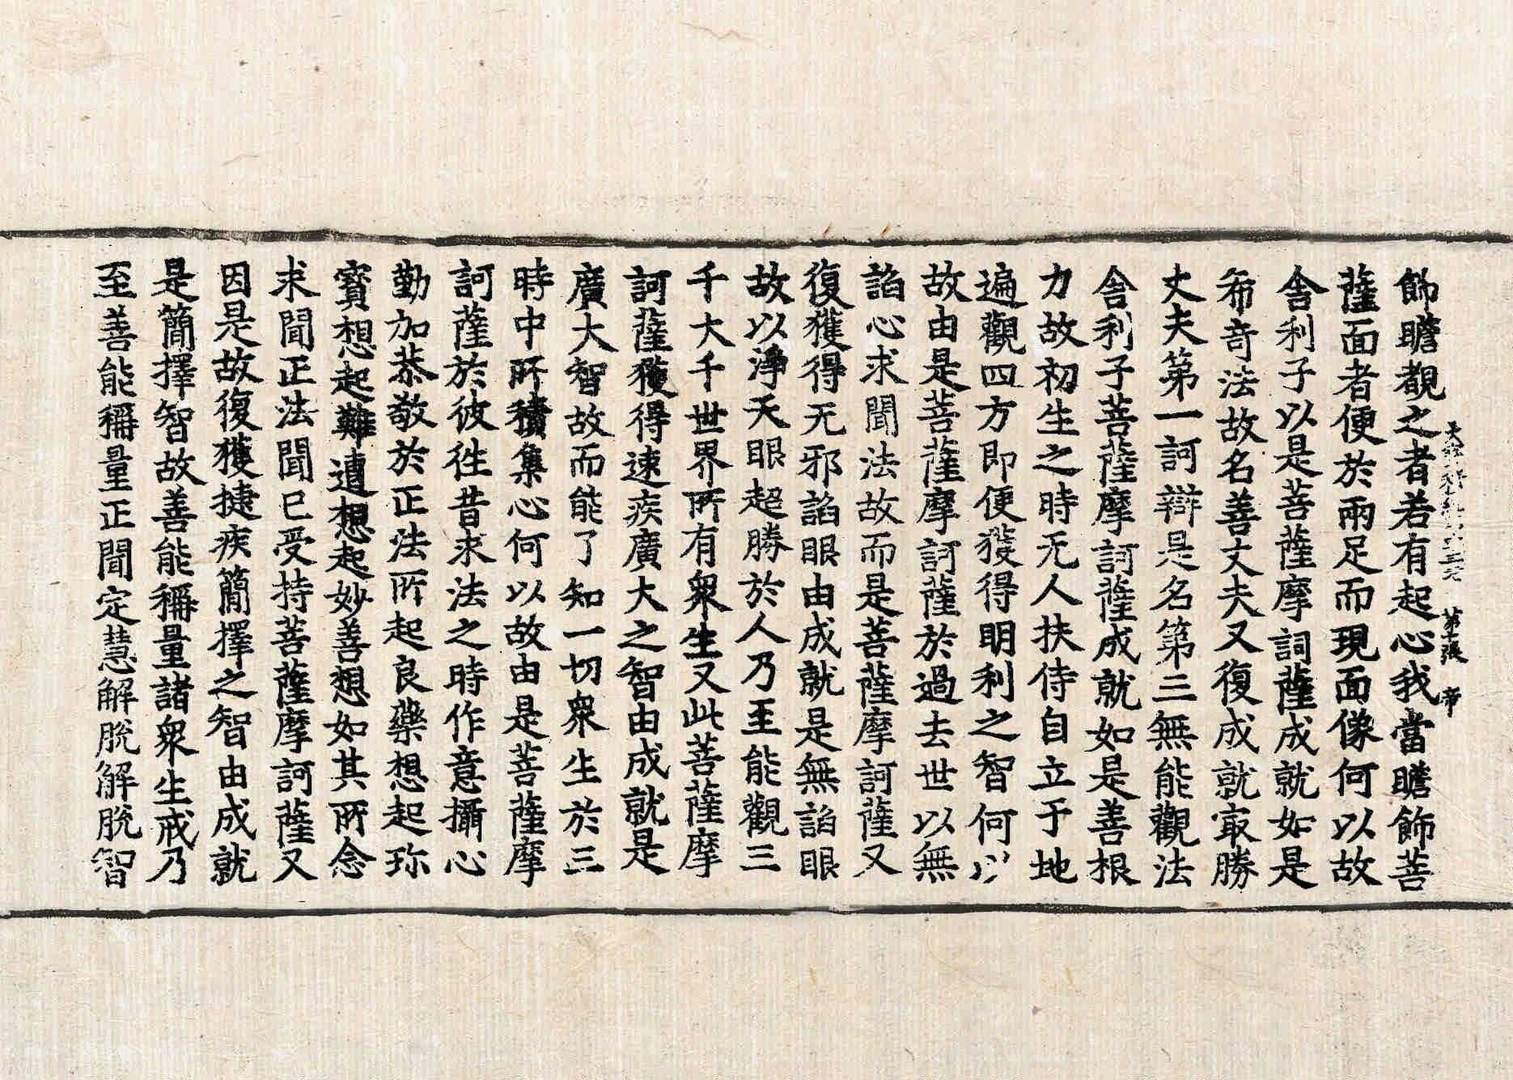 飾瞻覩之者若有起心我當瞻飾菩
薩面者便於兩足而現面像何以故
舍利子以是菩薩摩訶薩成就如是
希奇法故名善丈夫又復成就㝡勝
丈夫第一訶辯是名第三無能觀法
舍利子菩薩摩訶薩成就如是善根
力故初生之時无人扶侍自立于地
遍觀四方即便獲得明利之智何以
故由是菩薩摩訶薩於過去世以無
諂心求聞法故而是菩薩摩訶薩又
復獲得无邪諂眼由成就是無諂眼
故以淨天眼超勝於人乃至能觀三
千大千世界所有衆生又此菩薩摩
訶薩獲得速疾廣大之智由成就是
廣大智故而能了知一切衆生於三
時中所積集心何以故由是菩薩摩
訶薩於彼徃昔求法之時作意攝心
勤加恭敬於正法所起良藥想起珎
寶想起難遭想起妙善想如其所念
求聞正法聞已受持菩薩摩訶薩又
因是故復獲捷疾簡擇之智由成就
是簡擇智故善能稱量諸衆生戒乃
至善能稱量正聞定慧解脫解脫智
第 張 帝